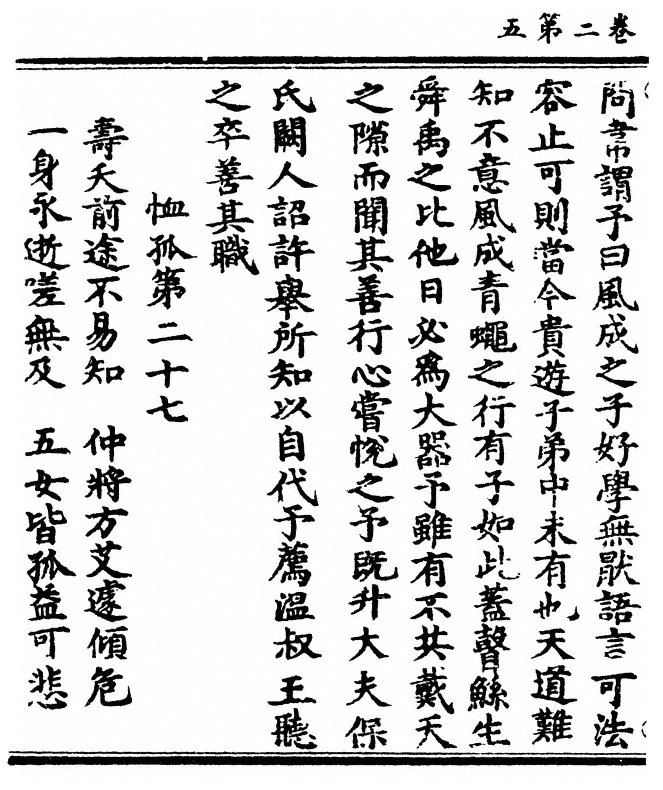 卷二第五
問常謂予曰風成之子好學無厭語言可法
容止可則當今貴遊子弟中未有也天道難
知不意風成青蠅之行有子如此蓋瞽鯀生
舜禹之比他日必爲大器予雖有不共戴天
之隙而聞其善行心嘗悅之予旣升大夫保
氏闕人詔許舉所知以自代予薦温叔王聽
之卒善其職
恤孤第二十七
壽夭前途不易知 仲將方艾遽傾危
一身永逝嗟無及 五女皆孤益可悲